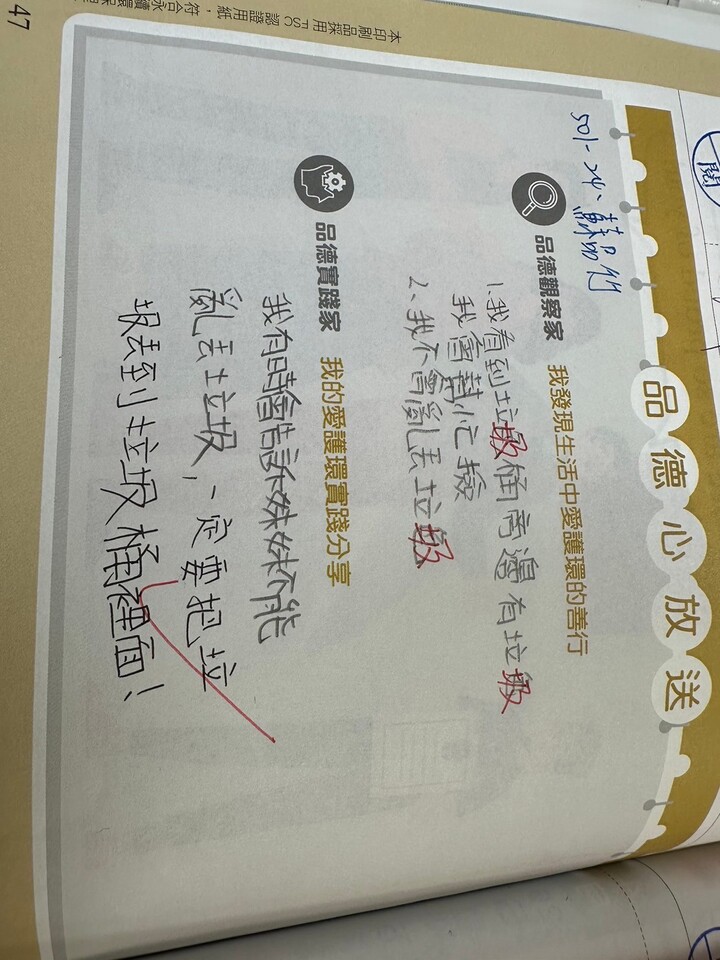 品德心放送
501-24、蘇品竹
品德觀察家 我發現生活中愛護環的善行
1.我看到垃圾桶旁邊有垃圾
我會幫忙撿
2、我不會亂丟垃圾
品德實踐家 我的愛護環實踐分享
我有時會告訴妹妹不能
亂丟垃圾，一定要把垃
圾丟到垃圾桶裡面！
47
閱